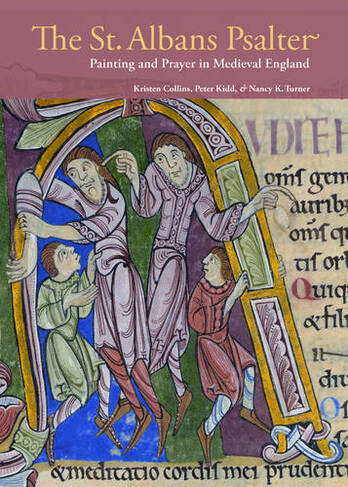 The St. Albans Psalter
Painting and Prayer in Medieval England
Kristen Collins, Peter Kidd, & Nancy K. Turner
UDITE H
om̄s gen
aurib
om̄s qu
tis orb
Quiq
&fil
&meditatio cordis mei prudenti